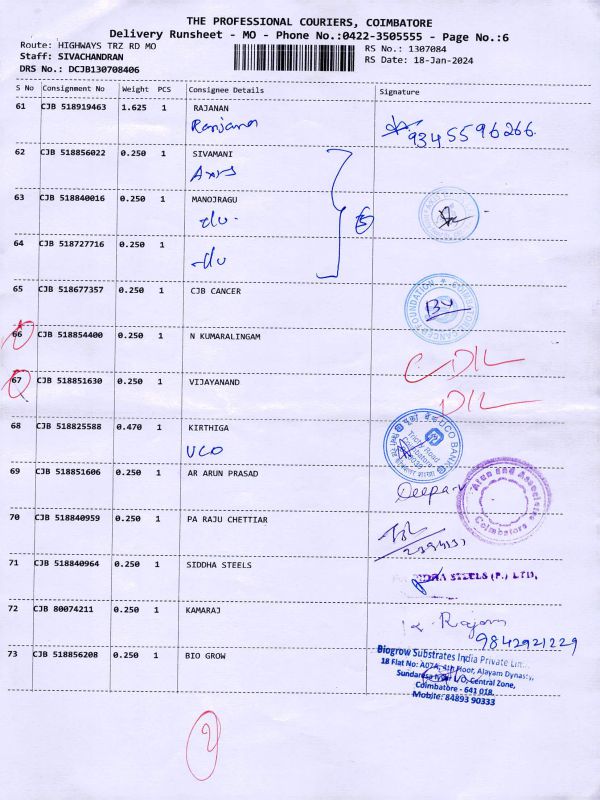 THE PROFESSIONAL COURIERS, COIMBATORE
Delivery Runsheet - MO - Phone No.:0422-3505555 - Page No.:6
Route: HIGHWAYS TRZ RD MO
RS No.: 1307084
Staff: SIVACHANDRAN
RS Date: 18-Jan-2024
DRS No.: DCJB130708406
S No Consignment No Weight PCS Consignee Details Signature
61 CJB 518919463 1.625 1 RAJANAN
Ranjana 9345596266
62 CJB 518856022 0.250 1 SIVAMANI
Axis
63 CJB 518840016 0.250 1 MANOJRAGU
-du-
64 CJB 518727716 0.250 1
-du
65 CJB 518677357 0.250 1 CJB CANCER
66 CJB 518854400 0.250 1 N KUMARALINGAM
CDIL
67 CJB 518851630 0.250 1 VIJAYANAND
DIL
68 CJB 518825588 0.470 1 KIRTHIGA
UCO
UCO BANK
Trichy Road
Coimbatore
69 CJB 518851606 0.250 1 AR ARUN PRASAD
Deepa
Arun and Associates
Coimbatore
70 CJB 518840959 0.250 1 PA RAJU CHETTIAR
71 CJB 518840964 0.250 1 SIDDHA STEELS
STEELS (P.) LTD,
72 CJB 80074211 0.250 1 KAMARAJ
Rajam
9842921229
73 CJB 518856208 0.250 1 BIO GROW
Biogrow Substrates India Private
18 Flat No: A07A, 4th Floor, Alayam Dynasty,
Central Zone,
Coimbatore - 641 018.
Mobile: 84893 90333
2